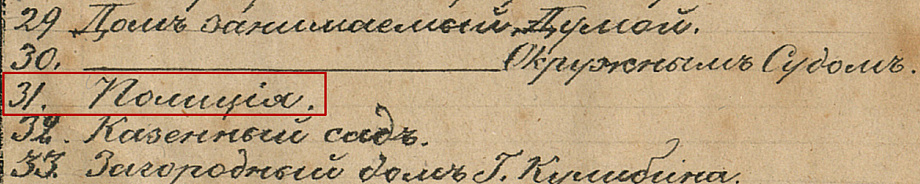 29 Домъ занимаемый Думой.
30. ——————— Окружнымъ Судомъ.
31. Полиція.
32. Казенный садъ.
33. Загородный домъ Г. Кулибина.